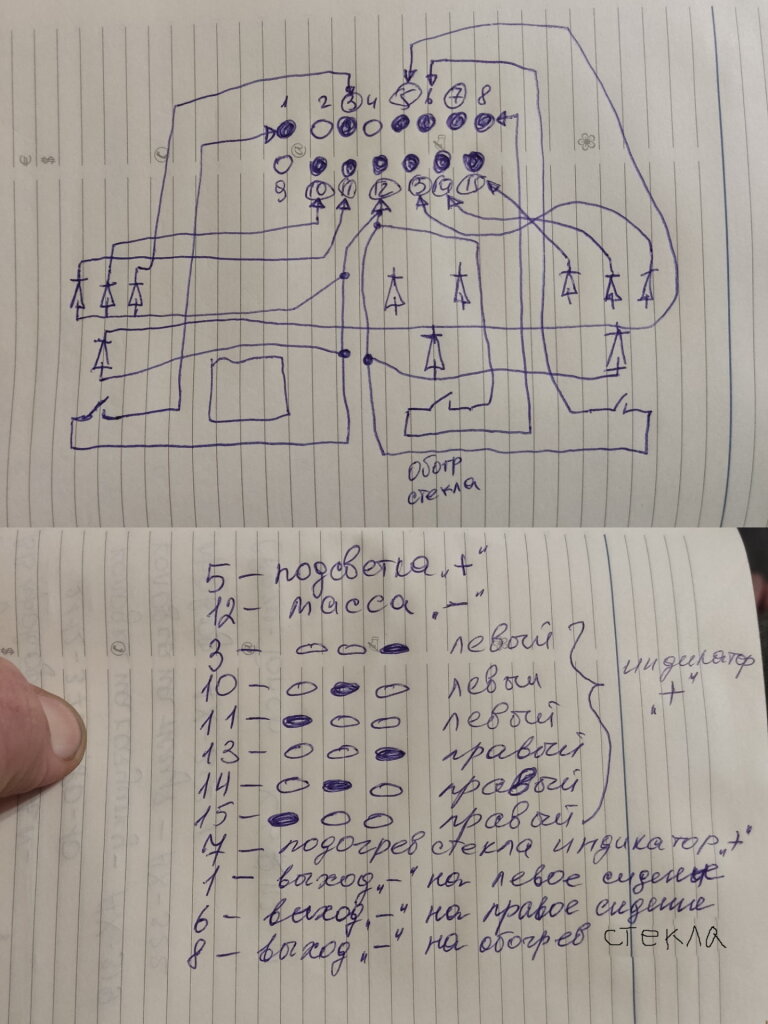 1 2 3 4 5 6 7 8
9 10 11 12 13 14 15
Обогр
стекла
5 – подсветка „+“
12 – масса „–“
3 – левый
10 – левый
11 – левый
13 – правый
14 – правый
15 – правый
индикатор
„+“
7 – подогрев стекла индикатор „+“
1 – выход „–“ на левое сидение
6 – выход „–“ на правое сидение
8 – выход „–“ на обогрев стекла